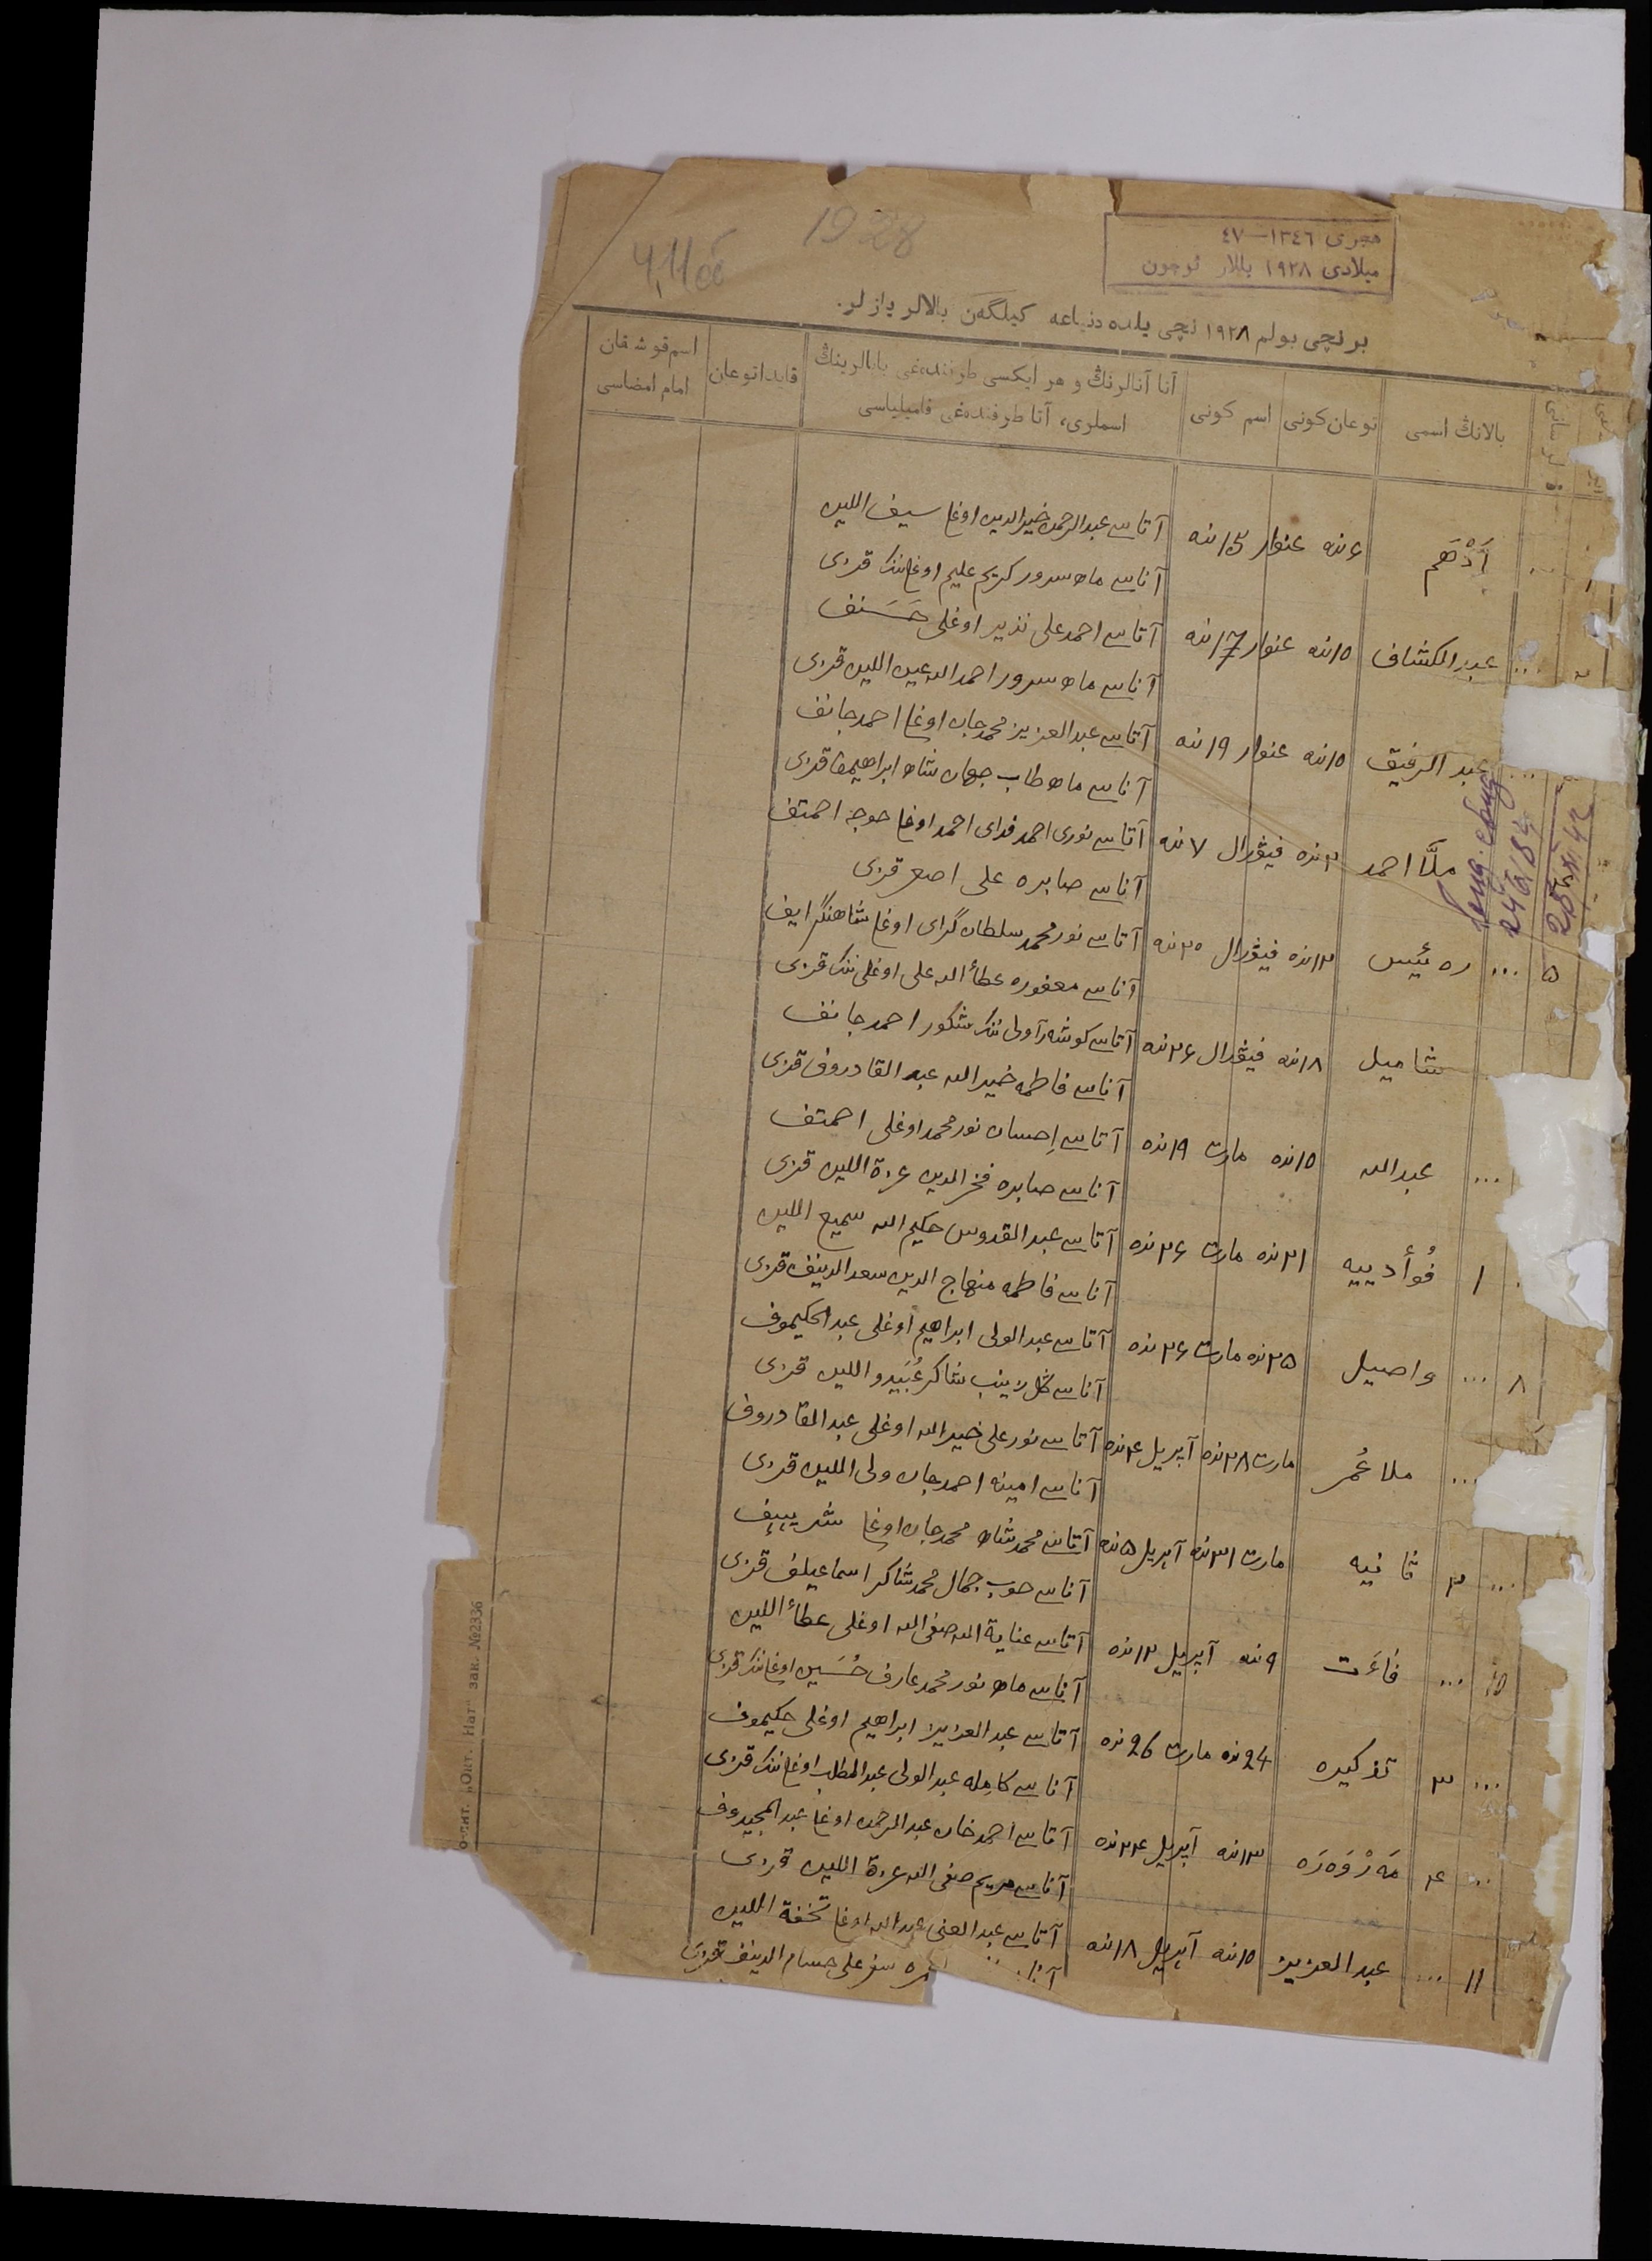 1928
هجرى ١٣٤٦—٤٧
ميلادى ١٩٢٨ يللار ئوچون
برنچى بولم ١٩٢٨ نچى يلده دنياعه كيلگەن بالالر يازلر.
بالانڭ اسمى
توعان كونى
اسم كونى
آتا آنالرنڭ و هر ايكسى طرفندەغى بابالرينڭ
اسملرى، آتا طرفندەغى فاميلياسى
قايدا توعان
اسم قوشقان
امام امضاسى
أدْهَم ۶نده عنوار 15نده آتاسى عبدالرحمن خيرالدين اوغلى سيف اللين
آناسى ماه سرور كريم عليم اوغلىننڭ قزى
... عبدالكشاف ۱۵نده عنوار 17نده آتاسى احمدعلى نذير اوغلى حَسَنف
آناسى ماه سرور احمدالله عين اللين قزى
... عبدالرفيق ۱۵نده عنوار ۱۹نده آتاسى عبدالعزيز محمدجان اوغلى احمدجانف
آناسى ماه طاب جهان شاه ابراهيمف قزى
ملّا احمد ۳نده فيۋرال ۷نده آتاسى نورى احمد فداى احمد اوغلى خوجه احمتف
آناسى صابره على اصغر قزى
۵ ... رەئيس ۱۳نده فيۋرال ۲۰نده آتاسى نورمحمد سلطان گراى اوغلى شاهنگرايف
آناسى معفوره عطأالله على اوغلىننڭ قزى
شاميل ۱۸نده فيۋرال ۲۶نده آتاسى كوشەر آولىننڭ شكور احمدجانف
آناسى فاطمه خيرالله عبدالقادروف قزى
... عبدالله ۱۵نده مارت ۱۹نده آتاسى إحسان نورمحمد اوغلى احمتف
آناسى صابره فخرالدين عزة اللين قزى
۱ فُوأدييه ۲۱نده مارت ۲۶نده آتاسى عبدالقدوس حكيم الله سميع اللين
آناسى فاطمه منهاج الدين سعدالدينف قزى
۸ ... واصيل ۲۵نده مارت ۲۶نده آتاسى عبدالولى ابراهيم اوغلى عبدالحكيموف
آناسى گل زينب شاكر عُبَيدواللين قزى
... ملا عُمر مارت ۲۸نده آپريل ۴نده آتاسى نورعلى خيرالله اوغلى عبدالقادروف
آناسى امينه احمدجان ولى اللين قزى
... ۲ ثانيه مارت ۳۱نده آپريل ۵نده آتاسى محمدشاه محمدجان اوغلى شريپف
آناسى حوب جمال محمدشاكر اسماعيلف قزى
۱۰ ... فاءَت ۹نده آپريل ۱۲نده آتاسى عناية الله صفى الله اوغلى عطأاللين
آناسى ماه نور محمدعارف حُسَين اوغلىننڭ قزى
... ۳ تزكيره 24نده مارت 26نده آتاسى عبدالعزيز ابراهيم اوغلى حكيموف
آناسى كامله عبدالولى عبدالمطلب اوغلىننڭ قزى
... ۴ مَەرْوَەرَە ۱۳نده آپريل ۲۴نده آتاسى احمدخان عبدالرحمن اوغلى عبدالمجيدوف
آناسى مريم صفى الله عزة اللين قزى
۱۱ ... عبدالعزيز ۱۵نده آپريل ۱۸نده آتاسى عبدالغنى عبدالله اوغلى تحفة اللين
سفرعلى حسام الدينف قزى
лит. „Окт. Наг“ зак. №2336